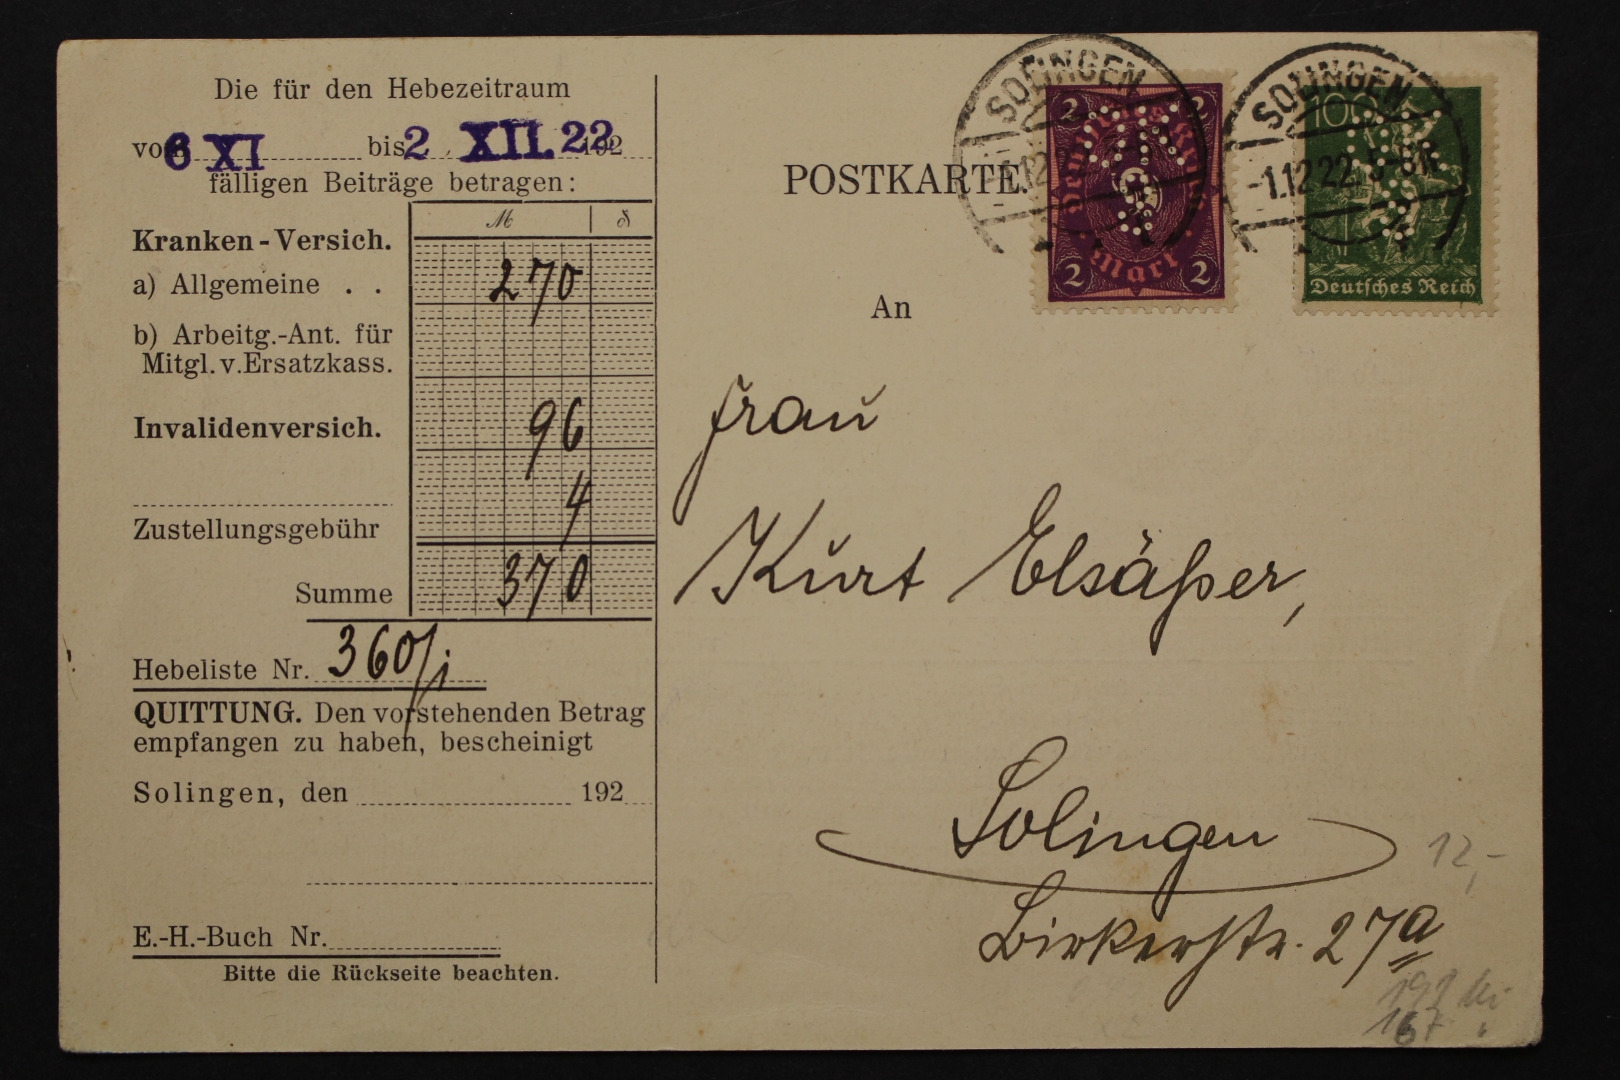 Die für den Hebezeitraum
vom 6 XI bis 2 XII. 22 192
fälligen Beiträge betragen:
M ₰
Kranken-Versich.
a) Allgemeine . . 270
b) Arbeitg.-Ant. für
Mitgl. v. Ersatzkass.
Invalidenversich. 96
4
Zustellungsgebühr
Summe 370
Hebeliste Nr. 360/j
QUITTUNG. Den vorstehenden Betrag
empfangen zu haben, bescheinigt
Solingen, den 192
E.-H.-Buch Nr.
Bitte die Rückseite beachten.
POSTKARTE
SOLINGEN
-1.12.22
2 2
Deutsches Reich
Mark
2 2
SOLINGEN
-1.12.22 5-6N
100
Deutsches Reich
An
Frau
Kurt Elsäßer,
Solingen
Birkerstr. 27a
12,-
167